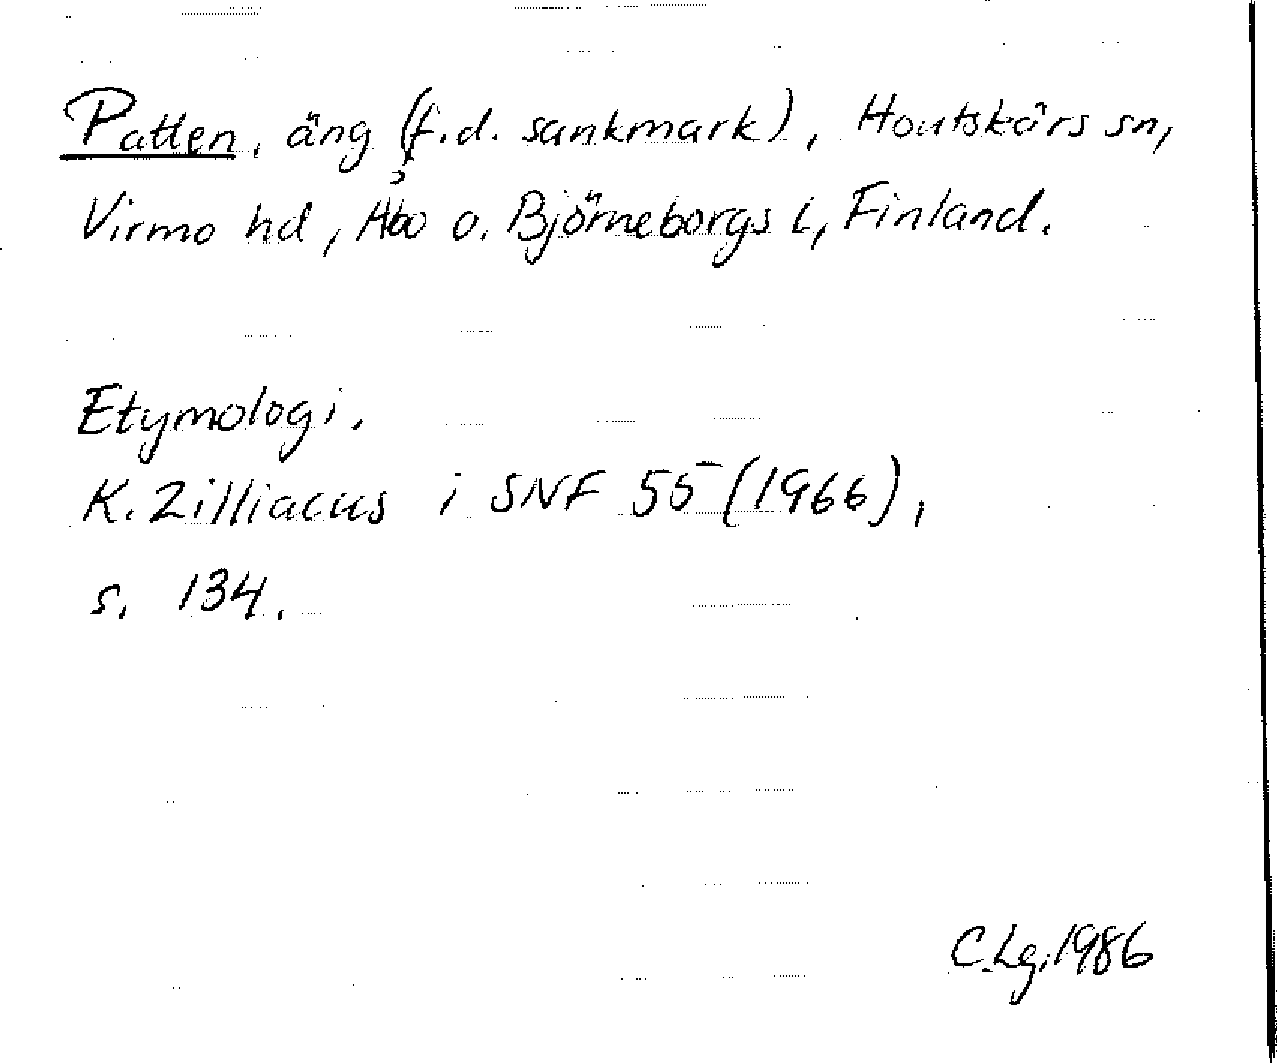 Patten, äng (f.d. sankmark), Houtskärs sn,
Virmo hd, Åbo o. Björneborgs L, Finland.
Etymologi.
K. Zilliacus i SNF 55 (1966),
s. 134.
C.Lg, 1986